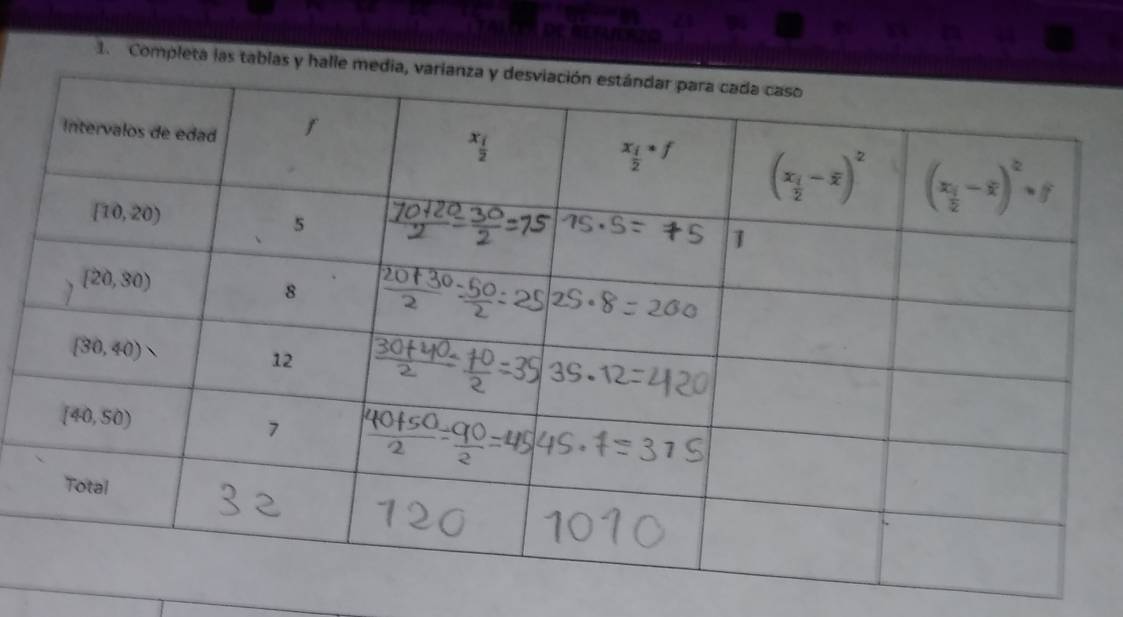 TALLER DE REFUERZO
1. Completa las tablas y halle media, varianza y desviación estándar para cada caso
Intervalos de edad f x_{\frac{i}{2}} x_{\frac{i}{2}} * f (x_{\frac{i}{2}} - x̄)^2 (x_{\frac{i}{2}} - x̄)^2 * f
[10, 20) 5 \frac{10+20}{2} = \frac{30}{2} = 15 15 · 5 = 75 1
[20, 30) 8 \frac{20+30}{2} = \frac{50}{2} = 25 25 · 8 = 200
[30, 40) 12 \frac{30+40}{2} = \frac{70}{2} = 35 35 · 12 = 420
[40, 50) 7 \frac{40+50}{2} = \frac{90}{2} = 45 45 · 7 = 315
Total 32 120 1010